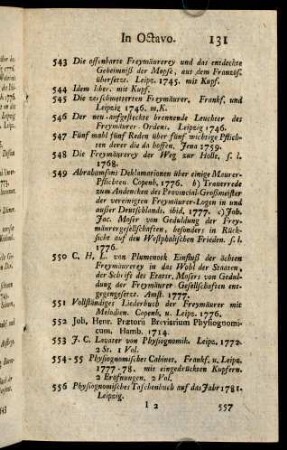 In Octavo. 131
543 Die offenbarte Freymäurerey und das entdeckte
Geheimniß der Mopse, aus dem Französ.
übersetzt. Leipz. 1745. mit Kupf.
544 Idem liber. mit Kupf.
545 Die zerschmetterten Freymäurer, Frankf. und
Leipzig 1746. m. K.
546 Der neu-aufgesteckte brennende Leuchter des
Freymäurer-Ordens. Leipzig 1746.
547 Fünf mahl fünf Reden über fünf wichtige Pflich-
ten derer die da hoffen. Jena 1759.
548 Die Freymäurerey der Weg zur Hölle, s. l.
1768.
549 Abrahamsons Deklamationen über einige Maurer-
Pflichten. Copenh. 1776. b) Trauerrede
zum Andencken des Provincial-Großmeister
der vereinigten Freymäurer-Logen in und
ausser Deutschlands. ibid, 1777. c) Joh.
Joc. Moser von Geduldung der Frey-
mäurergesellschaften, besonders in Rück-
sicht auf den Westphalischen Frieden. s. l.
1776.
550 C. H. L. von Plumenoek Einfluß der ächten
Freymäurerey in das Wohl der Staaten,
der Schrift des Etatsr. Mosers von Gedul-
dung der Freymäurer Gesellschaften ent-
gegengesetzt. Amst. 1777.
551 Vollständiges Liederbuch der Freymäurer mit
Melodien. Copenh. u. Leipz. 1776.
552 Joh. Henr. Prætorii Breviarium Physiognomi-
cum. Hamb. 1714.
553 J. C. Lavater von Physiognomik. Leipz. 1772.
2 St. 1 Vol.
554-55 Physiognomisches Cabinet, Frankf. u. Leipz.
1777-78. mit eingedrückten Kupfern.
2 Eröfnungen. 2 Vol.
556 Physiognomisches Taschenbuch auf das Jahr 1781.
Leipzig.
I 2 557